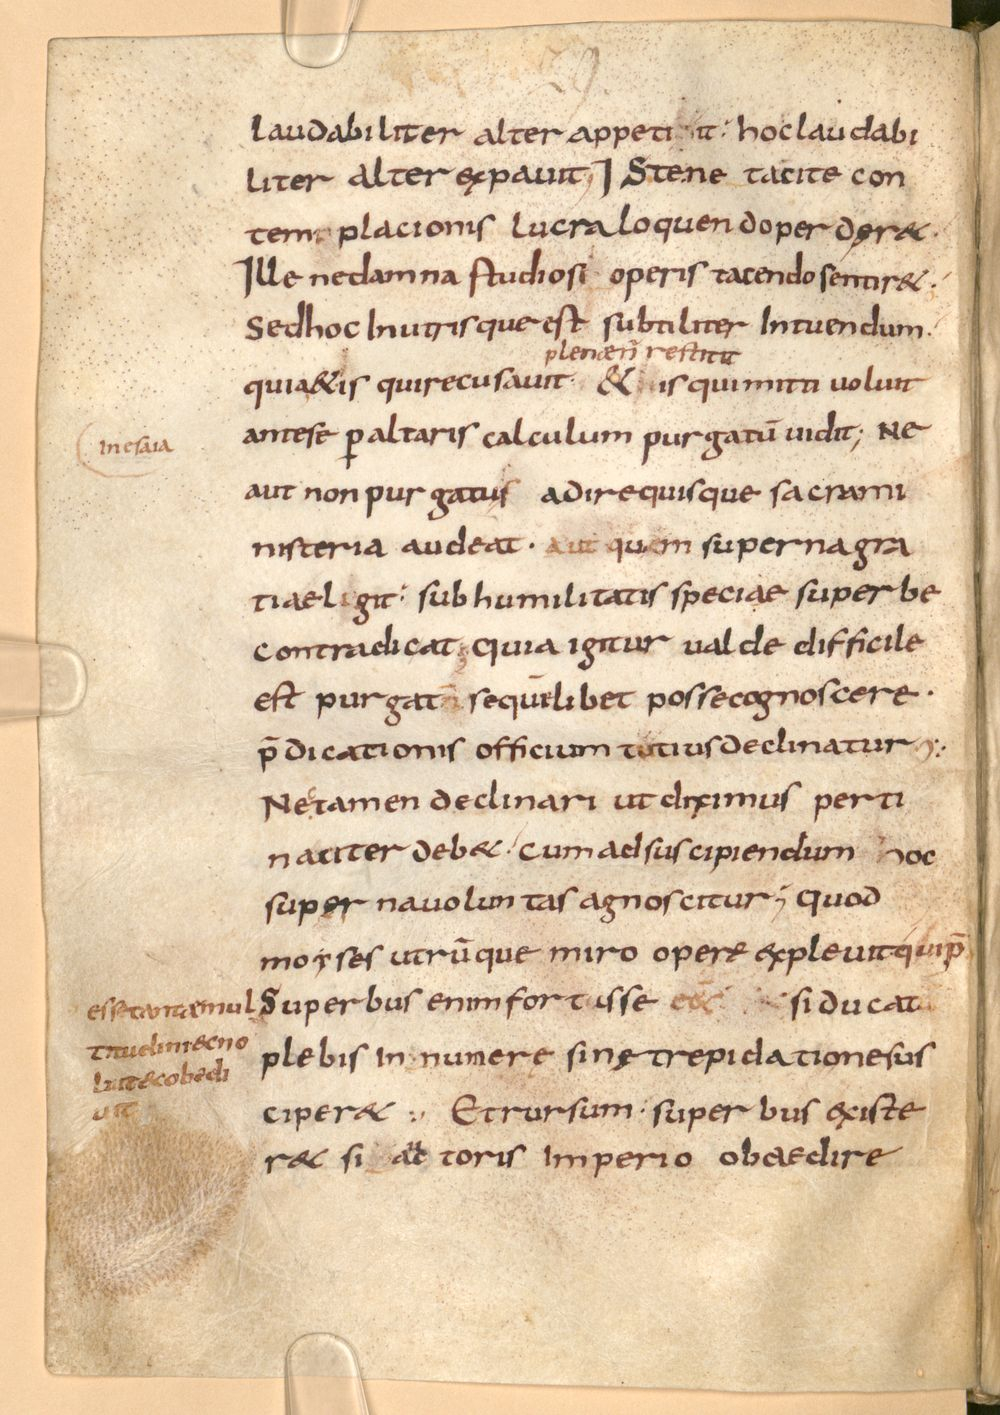 laudabiliter alter appetiit: hoc laudabi
liter alter expauit; IStene tacite con
templacionis lucra loquendo perderæ.
Ille ne damna studiosi operis tacendo sentiræ.
Sed hoc In utrisque est subtiliter Intuendum.
plenæ n̄ restitit
quia & is qui recusauit & is qui mitti uoluit
In esaia
ante se p altaris calculum purgatū uidit; Ne
aut non purgatus adire quisque sacra mi
nisteria audeat. aut quem superna gra
tia eligit: sub humilitatis speciae superbe
contradicat; Quia igitur ualde difficile
est purgatū se quēlibet posse cognoscere.
p̄dicationis officium tutius declinatur;
Ne tamen declinari ut diximus perti
naciter debæ. Cum ad suscipiendum hoc
superna uoluntas agnoscitur; Quod
moyses utrūque miro opere expleuit qui p̄
esse tantæ mul
titudini & no
luit & obedi
uit
Superbus enim fortasse si ducatū
plebis Innumere sine trepidatione sus
ciperæ. Et rursum superbus existe
ræ si actoris Imperio obaedire